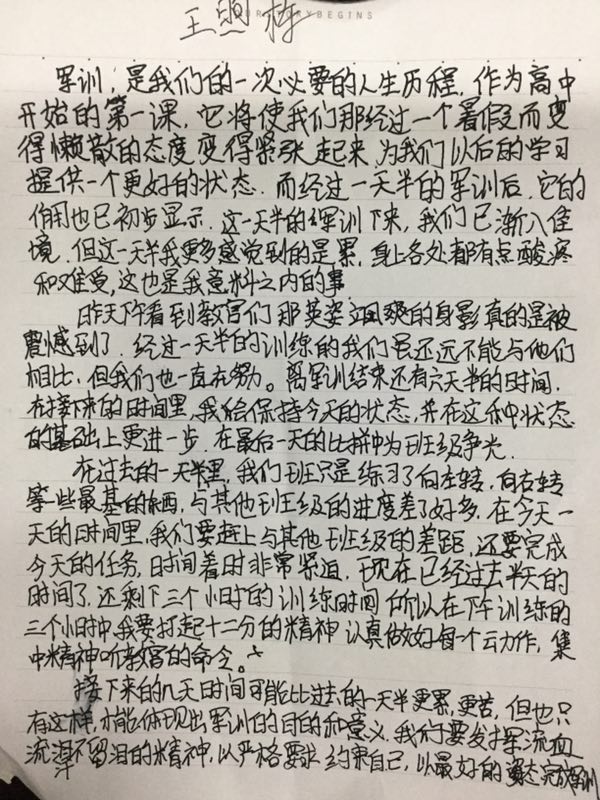 BEGINS
王照梅
军训，是我们的一次必要的人生历程，作为高中
开始的第一课，它将使我们那经过一个暑假而变
得懒散的态度变得紧张起来，为我们以后的学习
提供一个更好的状态．而经过一天半的军训后，它的
作用也已初步显示．这一天半的军训下来，我们已渐入佳
境．但这一天半我更多感觉到的是累，身上各处都有点酸疼
和难受，这也是我意料之内的事
昨天下午看到教官们那英姿飒爽的身影真的是被
震憾到了．经过一天半的训练的我们虽还远不能与他们
相比，但我们也一直在努力。离军训结束还有六天半的时间，
在接下来的时间里，我会保持今天的状态，并在这种状态
的基础上更进一步．在最后一天的比拼中为班级争光．
在过去的一天半里，我们班只是练习了向左转，向右转
等一些最基的东西，与其他班级的进度差了好多．在今天一
天的时间里，我们要赶上与其他班级的差距，还要完成
今天的任务，时间着时非常紧迫，现在已经过去半天的
时间了，还剩下三个小时的训练时间 所以在下午训练的
三个小时中，我要打起十二分的精神 认真做好每一个动作，集
中精神听教官的命令。
接下来的几天时间可能比过去的一天半更累，更苦，但也只
有这样，才能体现出军训的目的和意义．我们要发挥流血
流汗不留泪的精神，以严格要求约束自己，以最好的姿态完成军训